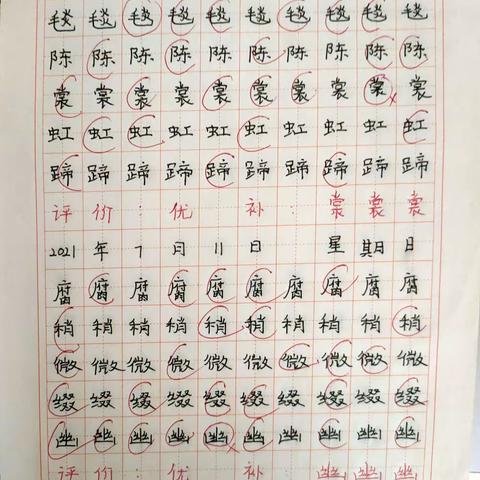 毯毯毯毯毯毯毯毯毯毯
陈陈陈陈陈陈陈陈陈陈
裳裳裳裳裳裳裳裳裳裳
虹虹虹虹虹虹虹虹虹虹
蹄蹄蹄蹄蹄蹄蹄蹄蹄蹄
评价：优 补：裳裳裳
2021年7月11日 星期日
腐腐腐腐腐腐腐腐腐腐
稍稍稍稍稍稍稍稍稍稍
微微微微微微微微微微
缀缀缀缀缀缀缀缀缀缀
幽幽幽幽幽幽幽幽幽幽
评价：优 补：幽幽幽